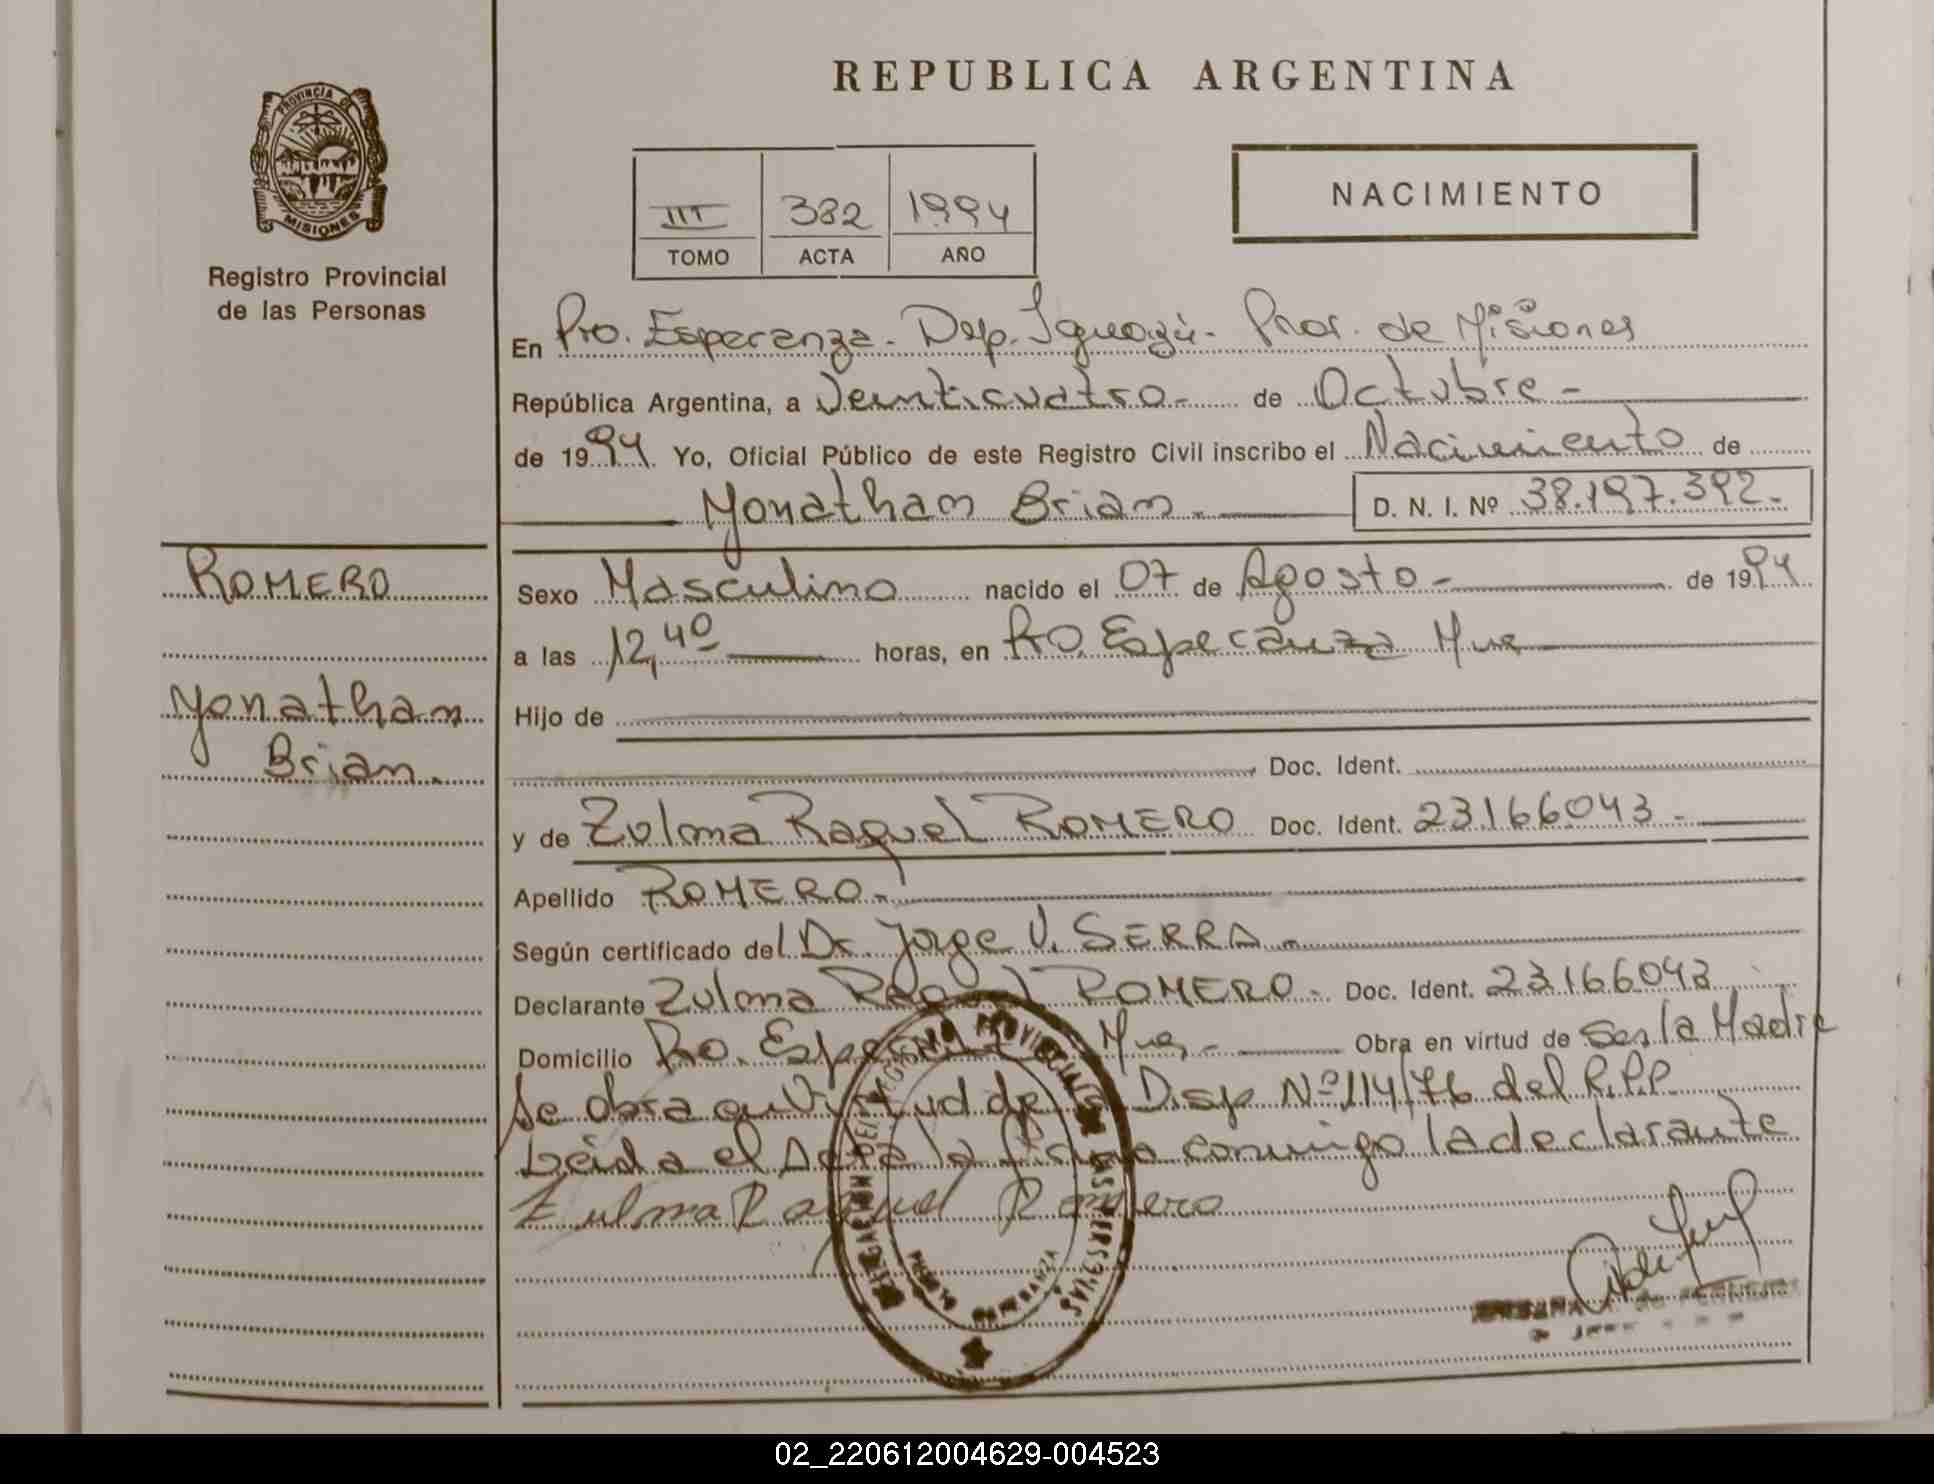 REPUBLICA ARGENTINA
PROVINCIA DE
MISIONES
Registro Provincial
de las Personas
III 382 1994
TOMO ACTA AÑO
NACIMIENTO
En Pto. Esperanza - Dep. Iguazú - Prov. de Misiones
República Argentina, a Veinticuatro - de Octubre -
de 1994 Yo, Oficial Público de este Registro Civil inscribo el Nacimiento de
Yonathan Brian. D. N. I. Nº 38.197.392.-
ROMERO
Yonathan
Brian.
Sexo Masculino nacido el 07 de Agosto - de 1994
a las 12,40 horas, en Pto. Esperanza Mnes
Hijo de
Doc. Ident.
y de Zulma Raquel ROMERO Doc. Ident. 23166043.-
Apellido ROMERO.-
Según certificado del Dr. Jorge V. SERRA.-
Declarante Zulma Raquel ROMERO.- Doc. Ident. 23166043
Domicilio Pto. Esperanza Mnes.- Obra en virtud de Ser la Madre
Se obra en Virtud de la Disp Nº 114/76 del R.P.P.
Leida el Acta la firma conmigo la declarante
Zulma Raquel Romero
REGISTRO PROVINCIAL DE LAS PERSONAS
ESPERANZA
02_220612004629-004523